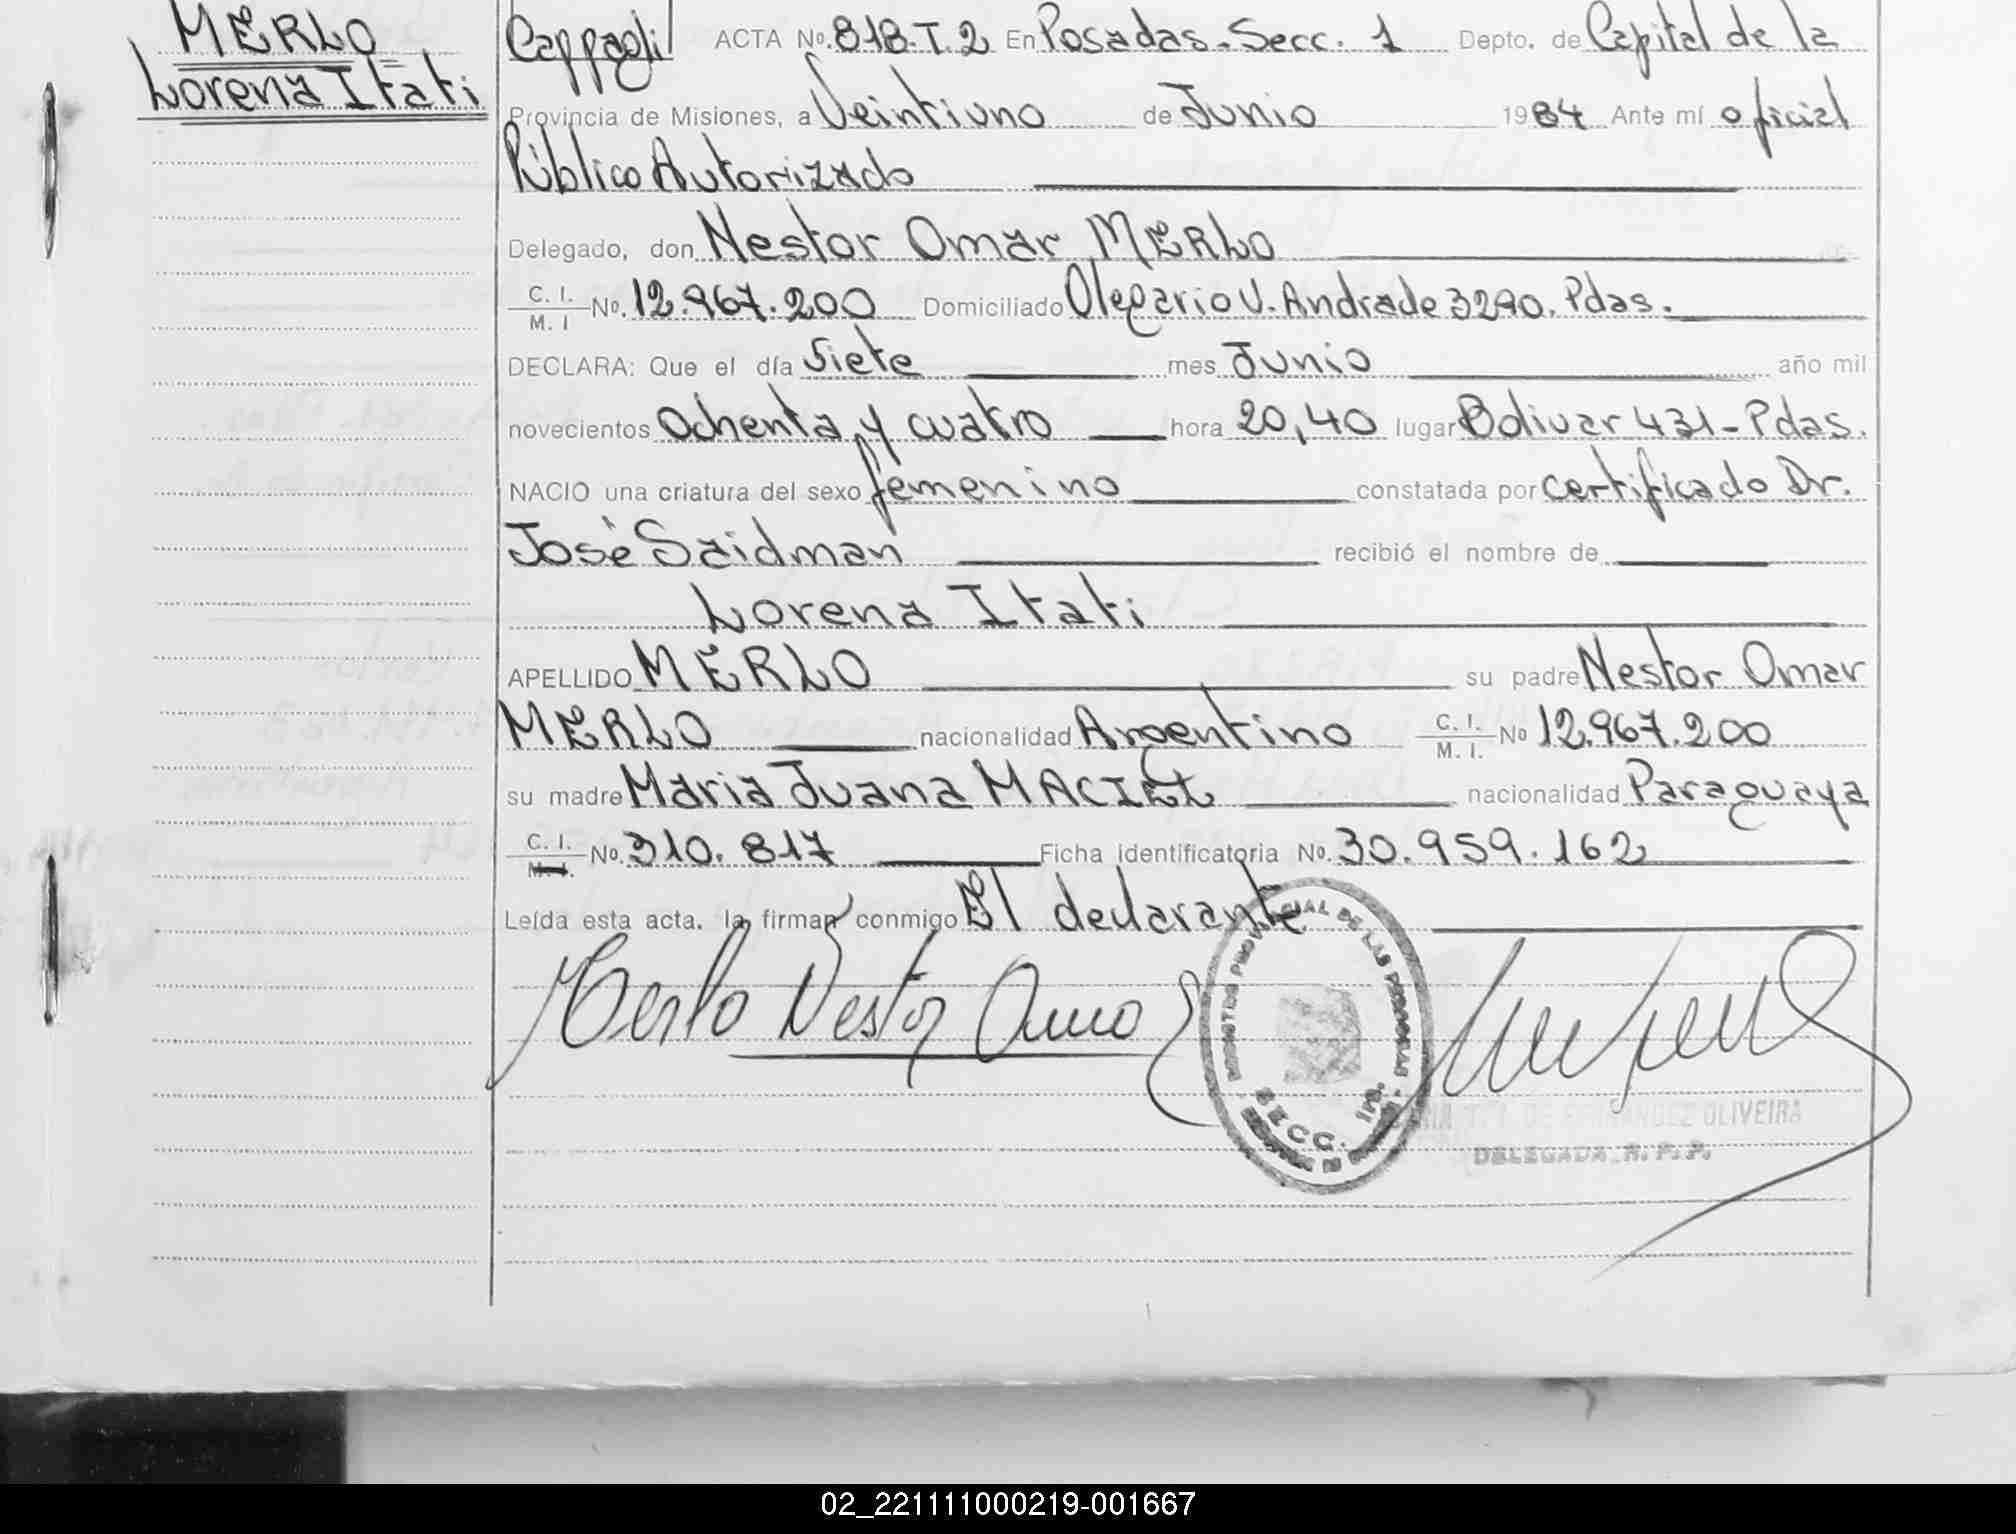 MERLO
Lorena Itati
Cappagli ACTA No. 818.T.2 En Posadas. Secc. 1 Depto. de Capital de la
Provincia de Misiones, a Veintiuno de Junio 1984 Ante mí oficial
Público Autorizado
Delegado, don Nestor Omar MERLO
C. I. / M. I No. 12.967.200 Domiciliado Olegario V. Andrade 3290. Pdas.
DECLARA: Que el día Siete mes Junio año mil
novecientos Ochenta y cuatro hora 20,40 lugar Bolivar 431 - Pdas.
NACIO una criatura del sexo femenino constatada por certificado Dr.
José Saidman recibió el nombre de
Lorena Itati
APELLIDO MERLO su padre Nestor Omar
MERLO nacionalidad Argentino C. I. / M. I. No 12.967.200
su madre Maria Juana MACIEL nacionalidad Paraguaya
C. I. / M. I. No. 310.817 Ficha identificatoria No. 30.959.162
Leída esta acta, la firman conmigo El declarante
Merlo Nestor Omar
SECC. 1ra.
DE FERNANDEZ OLIVEIRA
DELEGADA R. P. P.
02_221111000219-001667